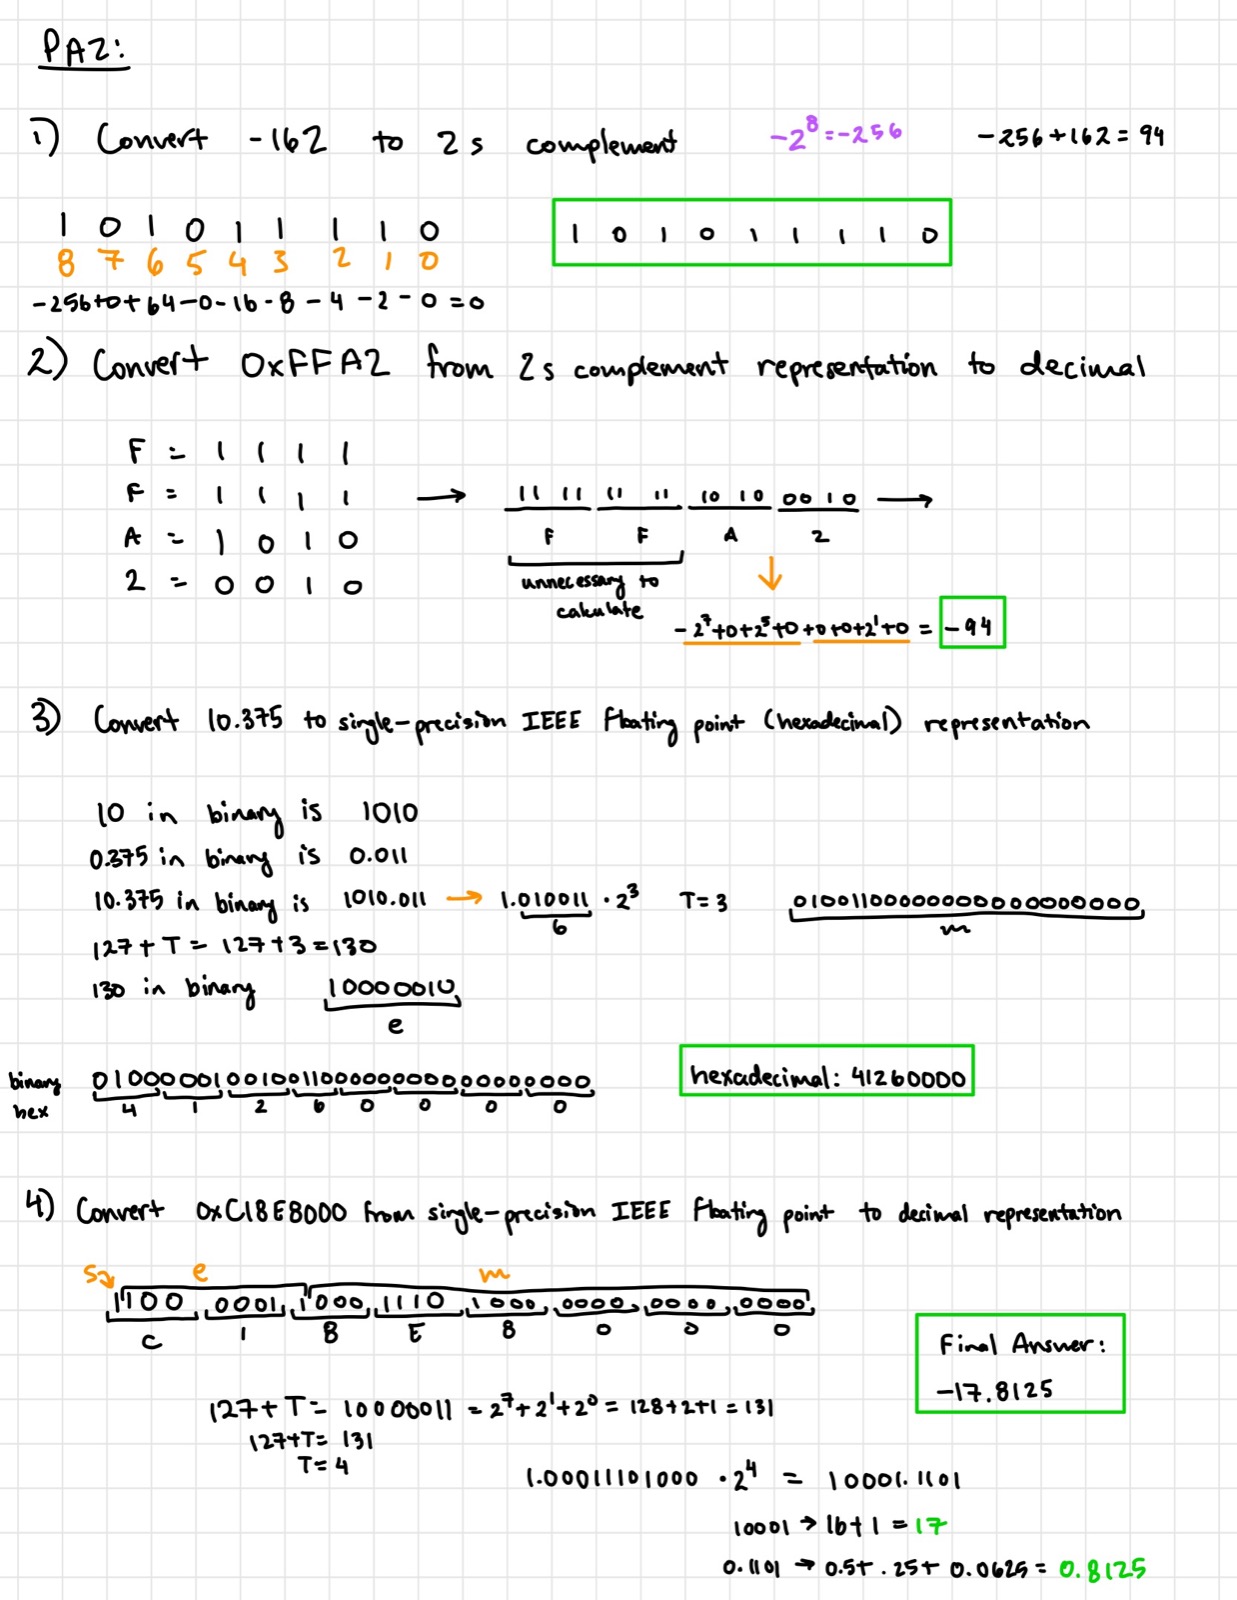 PA2:
1) Convert -162 to 2s complement
-2^8=-256
-256+162=94
1 0 1 0 1 1 1 1 0
8 7 6 5 4 3 2 1 0
-256+0+64-0-16-8-4-2-0=0
1 0 1 0 1 1 1 1 0
2) Convert 0xFFA2 from 2s complement representation to decimal
F = 1 1 1 1
F = 1 1 1 1
A = 1 0 1 0
2 = 0 0 1 0
→ 11 11 11 11 10 10 00 10 →
F F A 2
unnecessary to
calculate
↓
-2^7+0+2^5+0+0+0+2^1+0 = -94
3) Convert 10.375 to single-precision IEEE floating point (hexadecimal) representation
10 in binary is 1010
0.375 in binary is 0.011
10.375 in binary is 1010.011 → 1.010011 · 2^3 T=3 01001100000000000000000
6 m
127+T= 127+3=130
130 in binary 10000010
e
binary 01000001001001100000000000000000
hex 4 1 2 6 0 0 0 0
hexadecimal: 41260000
4) Convert 0xC18E8000 from single-precision IEEE floating point to decimal representation
s e m
1100 0001 1000 1110 1000 0000 0000 0000
C 1 8 E 8 0 0 0
Final Answer:
-17.8125
127+T= 10000011 = 2^7+2^1+2^0 = 128+2+1=131
127+T= 131
T=4
1.00011101000 · 2^4 = 10001.1101
10001 → 16+1=17
0.1101 → 0.5+.25+0.0625=0.8125